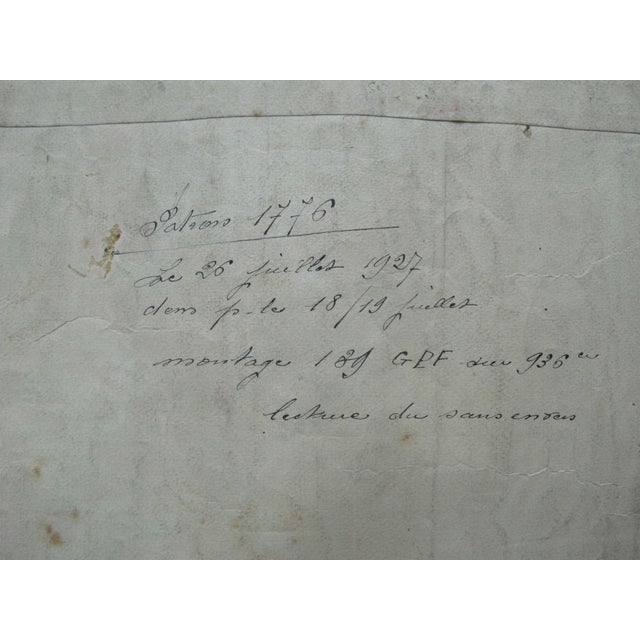 Patron 1776
Le 26 juillet 1927
dem p. le 18/19 juillet
montage 189 GPF sur 936 er
lecture du sans envers